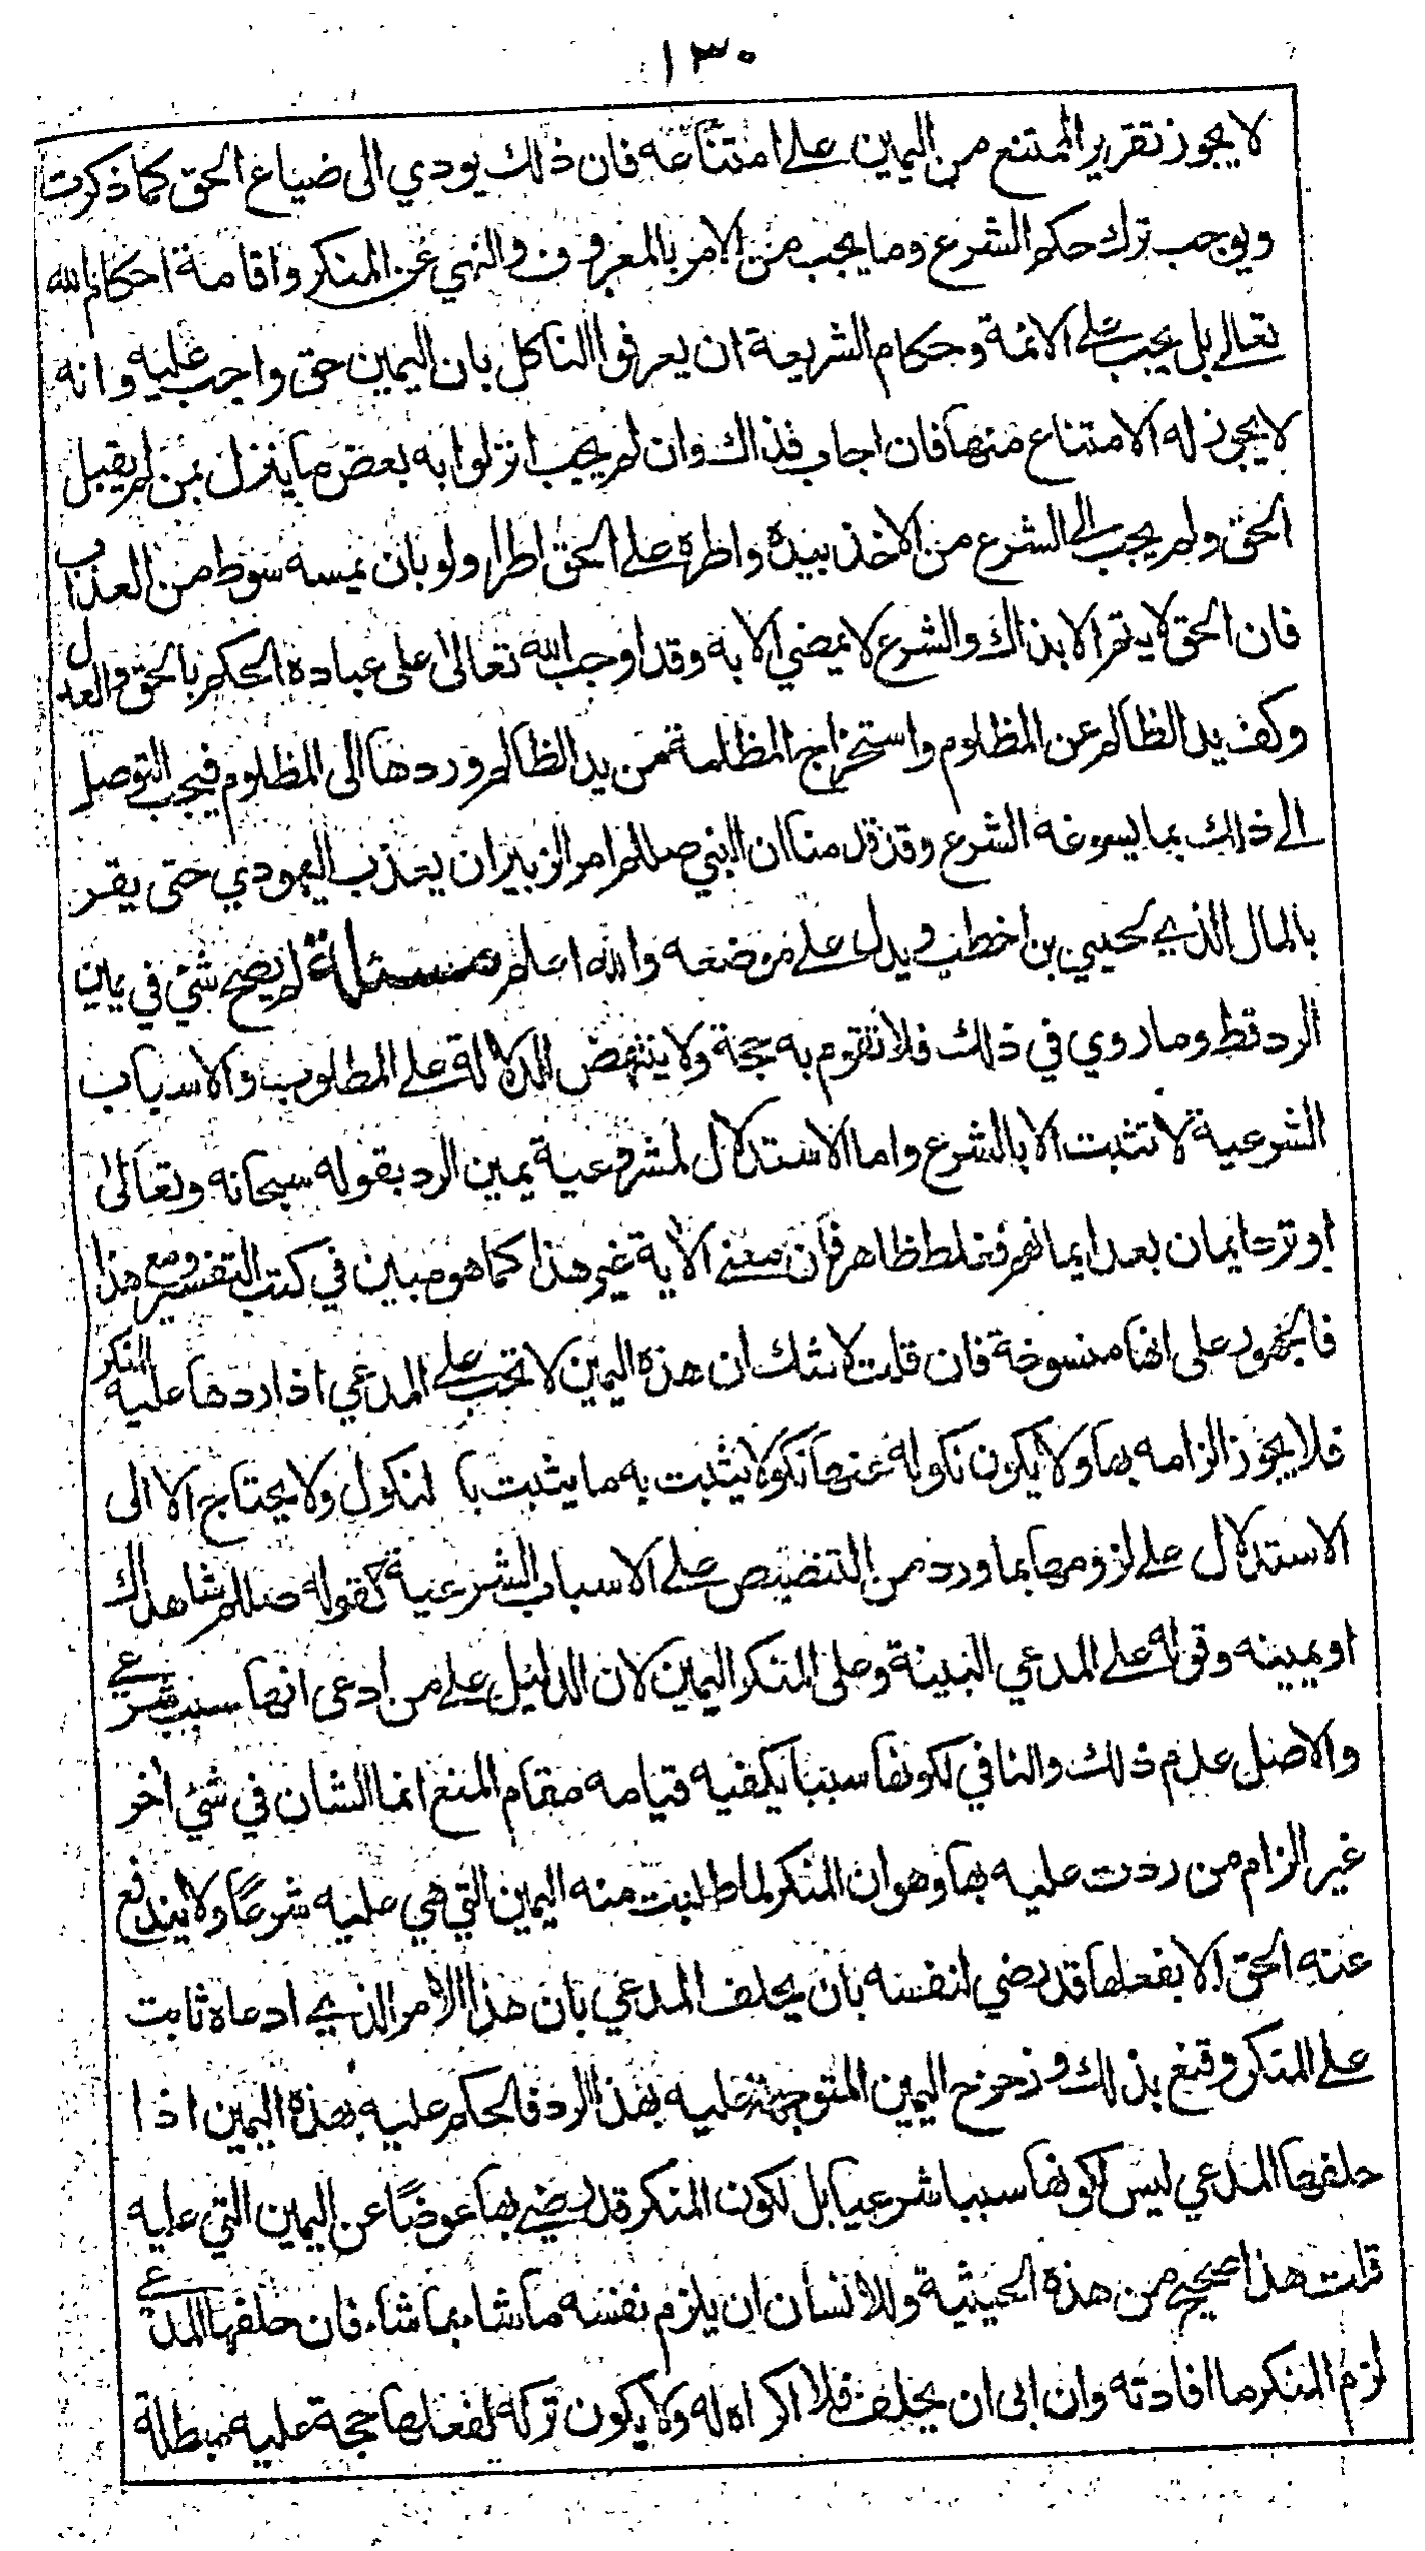 ١٣٠
لا يجوز تقرير الممتنع من اليمين على امتناعه فان ذلك يودي الى ضياع الحق كما ذكرت
ويوجب ترك حكم الشرع وما يجب من الامر بالمعروف والنهي عن المنكر واقامة احكام الله
تعالى بل يجب على الائمة وحكام الشريعة ان يعرفوا الناكل بان اليمين حق واجب عليه وانه
لا يجوز له الامتناع منها فان اجاب فذاك وان لم يجب انزلوا به بعض ما ينزل بمن لم يقبل
الحق ولم يجب الى الشرع من الاخذ بيده واطره على الحق اطرا ولو بان يمسه سوط من العذاب
فان الحق لا يتم الا بذاك والشرع لا يمضي الا به وقد اوجب الله تعالى على عباده الحكم بالحق والعدل
وكف يد الظالم عن المظلوم واستخراج المظلمة من يد الظالم وردها الى المظلوم فيجب التوصل
الى ذلك بما يسوغه الشرع وقد قدمنا ان النبي صللم امر الزبير ان يعذب اليهودي حتى يقر
بالمال الذي لحيي بن اخطب ويدل على موضعه والله اعلم مسئلة لم يصح شئ في يمين
الرد قط وما روي في ذلك فلا تقوم به حجة ولا ينتهض للدلالة على المطلوب والاسباب
الشرعية لا تثبت الا بالشرع واما الاستدلال لمشروعية يمين الرد بقوله سبحانه وتعالى
او ترد ايمان بعد ايمانهم فغلط ظاهر فان معنى الاية غير هذا كما هو مبين في كتب التفسير ومع هذا
فالجمهور على انها منسوخة فان قلت لا شك ان هذه اليمين لا تجب على المدعي اذا ردها عليه المنكر
فلا يجوز الزامه بها ولا يكون نكوله عنها نكولا يثبت به ما يثبت با لنكول ولا يحتاج الا الى
الاستدلال على لزومها بما ورد من التنصيص على الاسباب الشرعية كقوله صللم شاهداك
او يمينه وقوله على المدعي البينة وعلى المنكر اليمين لان الدليل على من ادعى انها سبب شرعي
والاصل عدم ذلك والنافي لكونها سببا يكفيه قيامه مقام المنع انما الشان في شئ اخر
غير الزام من ردت عليه بها وهو ان المنكر لما طلبت منه اليمين التي هي عليه شرعا ولا يندفع
عنه الحق الا بفعلها قد رضي لنفسه بان يحلف المدعي بان هذا الامر الذي ادعاه ثابت
على المنكر وقنع بذلك وزحزح اليمين المتوجهة عليه بهذا الرد فالحكم عليه بهذه اليمين اذا
حلفها المدعي ليس لكونها سببا شرعيا بل لكون المنكر قد رضي بها عوضا عن اليمين التي عليه
قلت هذا صحيح من هذه الحيثية وللانسان ان يلزم نفسه ما شاء بما شاء فان حلفها المدعي
لزم المنكر ما افادته وان ابى ان يحلف فلا اكراه له ولا يكون تركه لفعلها حجة عليه مبطلة